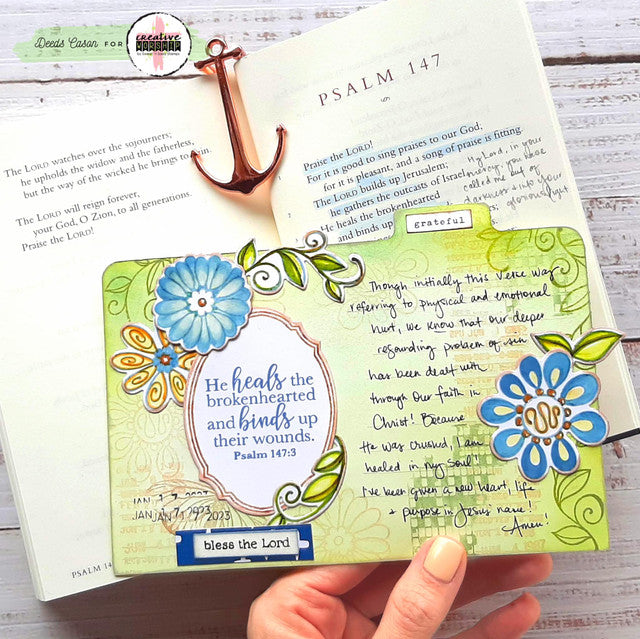 Deeds Cason FOR
creative
WORSHIP
The LORD watches over the sojourners;
he upholds the widow and the fatherless,
but the way of the wicked he brings to ruin.
The LORD will reign forever,
your God, O Zion, to all generations.
Praise the LORD!
PSALM 147
Praise the LORD!
For it is good to sing praises to our God;
for it is pleasant, and a song of praise is fitting.
The LORD builds up Jerusalem;
he gathers the outcasts of Israel
He heals the brokenhearted
and binds up
My Lord, in your
mercy, you have
called me out of
darkness + into your
glorious light
grateful
Though initially this verse was
referring to physical and emotional
hurt, we know that our deeper
resounding problem of sin
has been dealt with
through our faith in
Christ! Because
He was crushed, I am
healed in my soul!
I've been given a new heart, life
+ purpose in Jesus name!
Amen!
He heals the
brokenhearted
and binds up
their wounds.
Psalm 147:3
JAN 17 2023
JAN 17 2023
bless the Lord
PSALM 14